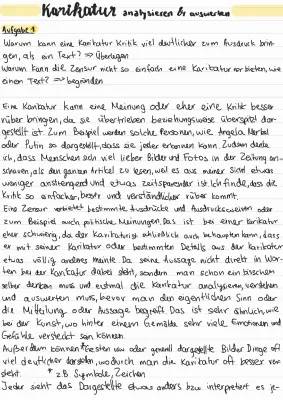 Karikatur analysieren & auswerten
Aufgabe 1
Warum kann eine Karikatur Kritik viel deutlicher zum Ausdruck brin-
gen, als ein Text? => Überlegen
Warum kann die Zensur nicht so einfach eine Karikatur verbieten, wie
einen Text? => begründen
Eine Karikatur kann eine Meinung oder eher eine Kritik besser
rüber bringen, da sie übertrieben beziehungsweise überspitzt dar-
gestellt ist. Zum Beispiel werden solche Personen, wie Angela Merkel
oder Putin so dargestellt, dass sie jeder erkennen kann. Zudem denke
ich, dass Menschen sich viel lieber Bilder und Fotos in der Zeitung an-
schauen, als den ganzen Artikel zu lesen, weil es aus meiner Sicht etwas
weniger anstrengend und etwas zeitsparender ist. Ich finde, dass die
Kritik so einfacher, besser und verständlicher rüber kommt.
Eine Zensur verbietet bestimmte Ausdrücke und Ausdrucksweisen oder
zum Beispiel auch politische Meinungen. Das ist bei einer Karikatur
eher schwierig, da der Karikaturist schließlich auch behaupten kann, dass
er mit seiner Karikatur oder bestimmten Details aus der Karikatur
etwas völlig anderes meinte. Da seine Aussage nicht direkt in Wor-
ten bei der Karikatur dabei steht, sondern man schon ein bisschen
selber denken muss und erstmal die Karikatur analysieren, verstehen
und auswerten muss, bevor man den eigentlichen Sinn oder
die Mitteilung oder Aussage begreift. Das ist sehr ähnlich, wie
bei der Kunst, wo hinter einem Gemälde sehr viele Emotionen und
Gefühle versteckt sein können.
Außerdem können *Gesten usw oder generell dargestellte Bilder Dinge oft
viel deutlicher darstellen, wodurch man die Karikatur oft besser ver-
steht. * z.B Symbole, Zeichen
Jeder sieht das Dargestellte etwas anders bzw interpretiert es je-